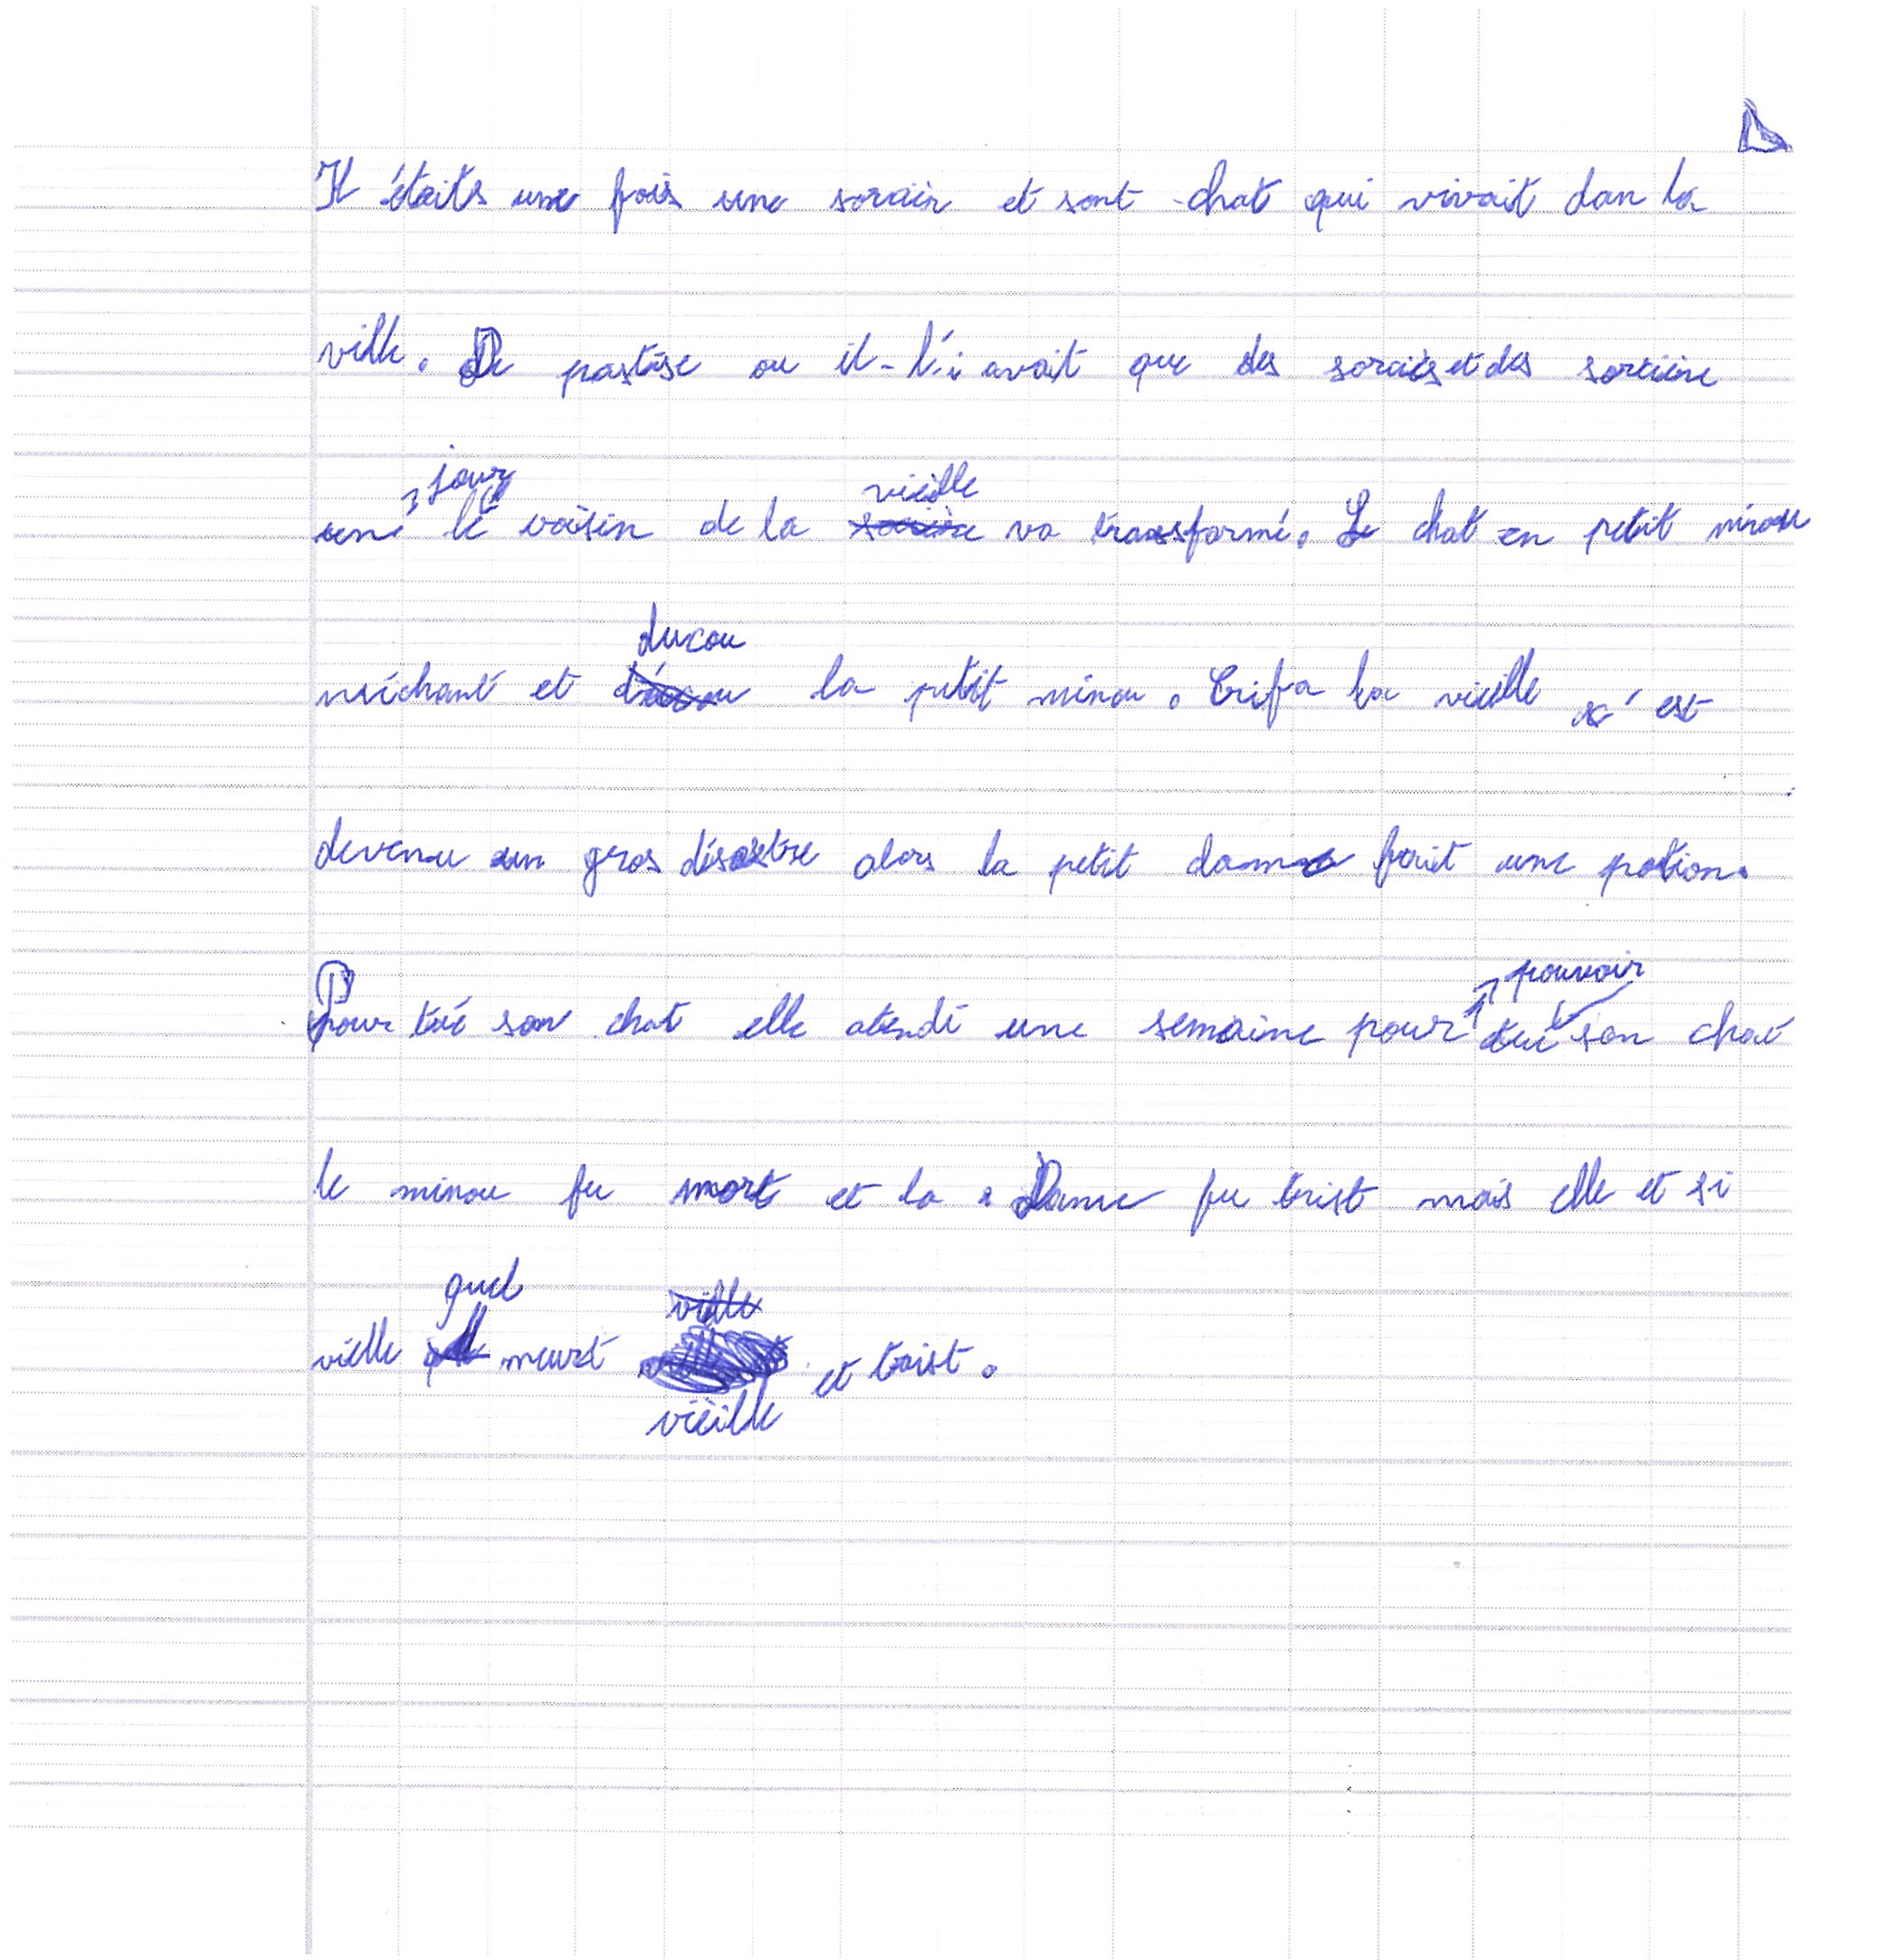 Il étaits une fois une sorcièr et sont chat qui vivait dan la
ville. De pastèse ou il-l'i avait que des sorciès et des sorcière
une jour le voisin de la vieille va transformé. Le chat en petit minou
méchant et ducou la petit minou. Grifa la vieille sc' est
devenu un gros désastre alors la petit damme fait une potion.
Pour tué son chat elle atendé une semaine pour pouvoir tué son chat
le minou fu mort et la Dame fu trist mais elle et si
vielle quel meurt vieille et trist.